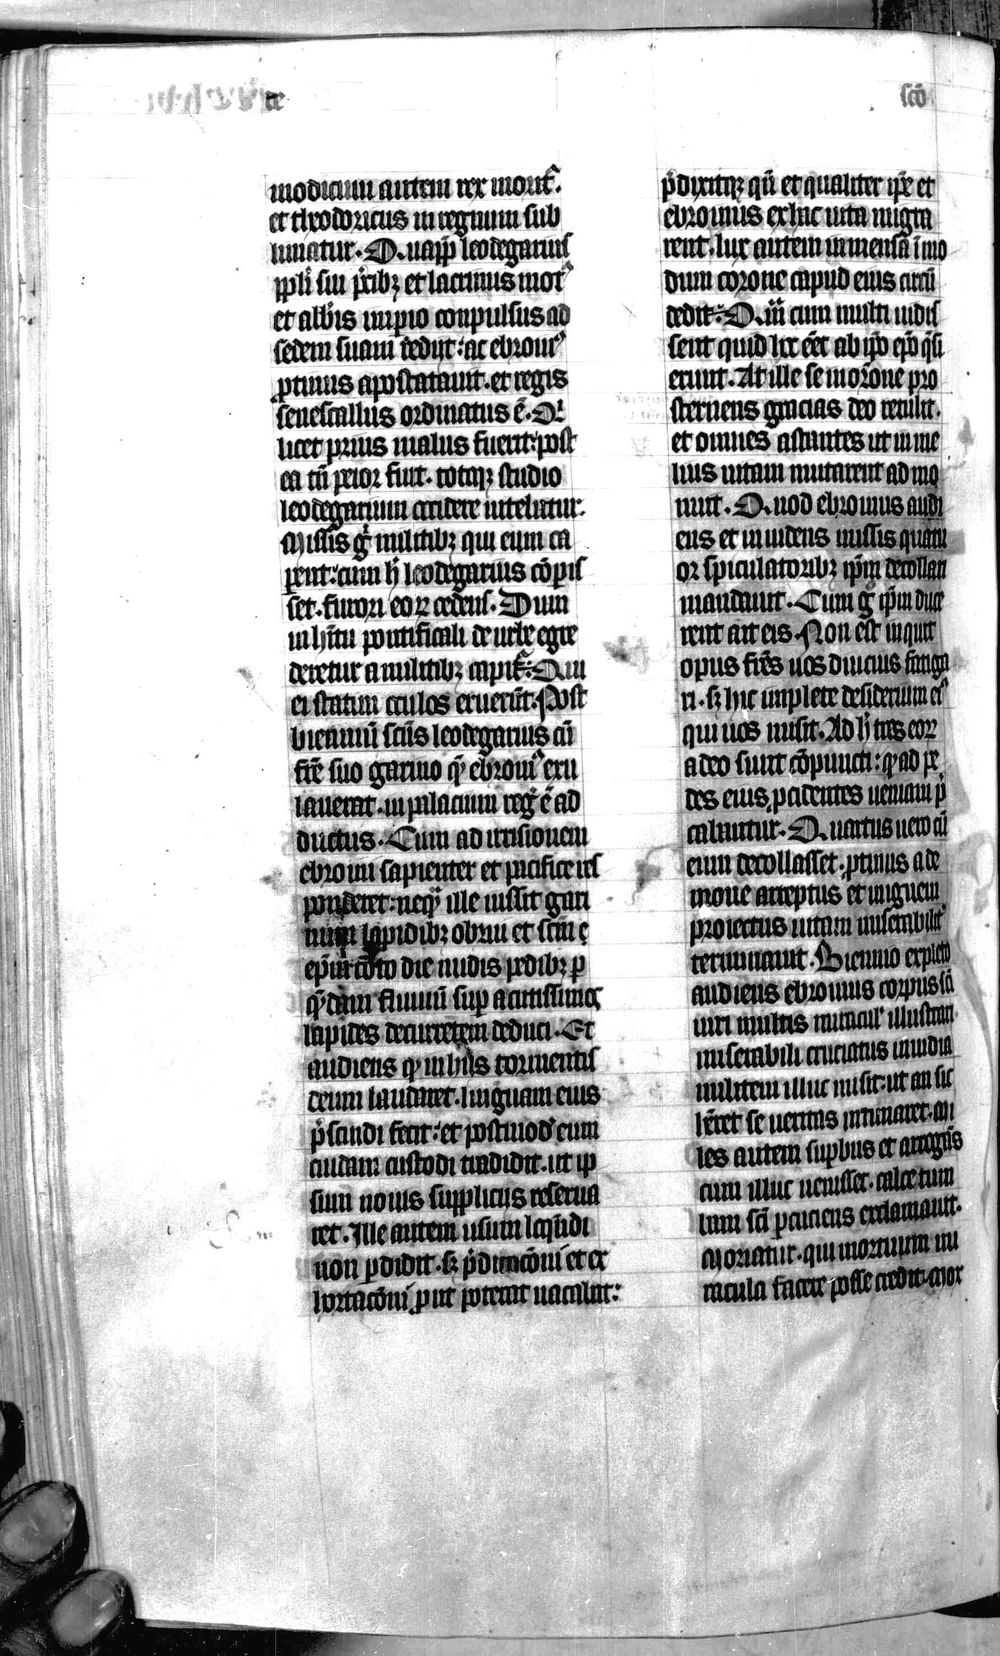 de scō
modicum autem rex morit᷑.
et theodoricus in regnum sub
limatur. Quapp̄ leodegarius
ppl̄i sui p̄cibꝫ et lacrimis motꝰ
et abb̄is imperio conpulsus ad
sedem suam rediit: ac ebroinꝰ
ꝓtinus apostatauit. et regis
senescallus ordinatus ē. Qi
licet prius malus fuerit: post
ea tn̄ peior fuit. totqꝫ studio
leodegarium occidere nitebatur:
Missis gͦ militibꝫ qui eum ca
perent: cum h̄ leodegarius cōpis
set. furori eoꝝ cedens. Dum
in hītu pontificali de urbe egre
deretur a militibꝫ capit᷑: Qui
ei statim oculos eruerūt. Post
bienniū scūs leodegarius cū
frē suo garino qͫ ebroinꝰ exu
lauerat. in palacium reḡ ē ad
ductus. Cum ad irrisionem
ebroini sapienter et pacifice res
ponderet: neqͫ ille iussit gari
num lapidibꝫ obrui et scm̄ e
ep̄m toto die nudis pedibꝫ ꝑ
qͫdam fluuiū sup acutissimos
lapides decurrētem deduci. Et
audiens qꝫ in hiis tormentis
deum laudaret. linguam eius
p̄scindi fecit: et postmodꝰ eum
cuidam custodi tradidit. ut ip
sum nouis suppliciis reserua
ret. Ille autem usum loqn̄di
non ꝑdidit. sꝫ p̄dicacōni et ex
hortacōni ꝓut poterat uacabat:
p̄dixitqꝫ qn̄ et qualiter ip̄e et
ebroinus ex hac uita migra
rent. lux autem inmensa ī mo
dum corone capud eius circū
dedit: Qm̄ cum multi uidis
sent quid hec eēt ab ip̄o ep̄o q̄si
erunt. At ille se in orōne pro
sternens gracias deo retulit.
et omnes astantes ut in me
lius uitam mutarent ad mo
nuit. Quod ebroinus audi
ens et inuidens missis quatu
or spiculatoribꝫ ip̄m decollari
mandauit. Cum gͦ ip̄m duce
rent ait eis. Non est inquit
opus frēs uos diucius fatiga
ri. sꝫ hic implete desiderium eiꝰ
qui uos misit. Ad h̄ tres eoꝝ
adeo sunt cōpuncti: qꝫ ad pe
des eius ꝓcidentes ueniam p̄
cabantur. Quartus uero cū
eum decollasset. ꝓtinus a de
mone arreptus et in ignem
proiectus uitam miserabilit᷑
terminauit. Biennio expleto
audiens ebroinus corpus scī
uiri multis miracul᷑ illustrari
miserabili cruciatus inuidia
militem illuc misit: ut an sic
hēret se ueritas intimaret. Mi
les autem supbus et arrogans
cum illuc uenisset. calce tum
lum scī percuciens exclamauit.
Moriatur. qui mortuum mi
racula facere posse credit. Mox